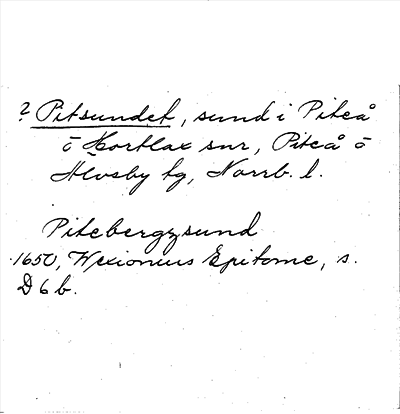 ? Pitsundet, sund i Piteå
o Hortlax snr, Piteå o
Älvsby tg, Norrb. l.
Pitebergzsund
1650, Wexionius Epitome, s.
D 6 b.